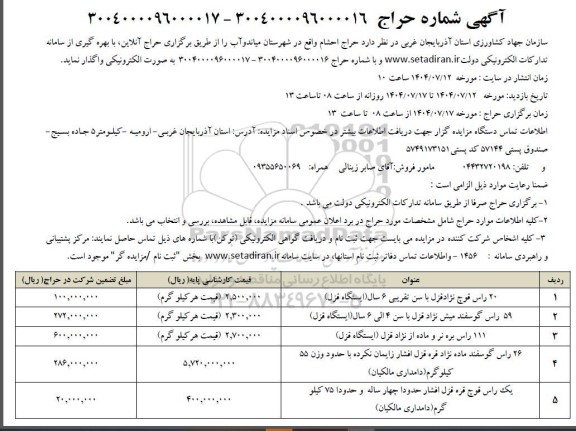 آگهی شماره حراج ۳۰۰۴۰۰۰۰۹۶۰۰۰۰۱۶ - ۳۰۰۴۰۰۰۰۹۶۰۰۰۰۱۷
سازمان جهاد کشاورزی استان آذربایجان غربی در نظر دارد حراج احشام واقع در شهرستان میاندوآب را از طریق برگزاری حراج آنلاین، با بهره گیری از سامانه
تدارکات الکترونیکی دولت www.setadiran.ir و با شماره حراج ۳۰۰۴۰۰۰۰۹۶۰۰۰۰۱۶ - ۳۰۰۴۰۰۰۰۹۶۰۰۰۰۱۷ به صورت الکترونیکی واگذار نماید.
زمان انتشار در سایت : مورخه ۱۴۰۴/۰۷/۱۲ ساعت ۱۰
تاریخ بازدید: مورخه ۱۴۰۴/۰۷/۱۲ تا ۱۴۰۴/۰۷/۱۷ روزانه از ساعت ۰۸ تاساعت ۱۳
زمان برگزاری حراج : مورخه ۱۴۰۴/۰۷/۱۷ از ساعت ۰۸ تا ساعت ۱۳
اطلاعات تماس دستگاه مزایده گزار جهت دریافت اطلاعات بیشتر در خصوص اسناد مزایده: آدرس: استان آذربایجان غربی- ارومیه -کیلومتر۵ جاده بسیج-
صندوق پستی ۵۷۱۴۴ کد پستی ۵۷۴۹۱۷۳۱۵۱
و تلفن: ۰۴۴۳۲۷۲۰۱۹۸ مامور فروش:آقای صابر زینالی همراه: ۰۹۳۵۵۶۵۰۰۶۹
ضمنا رعایت موارد ذیل الزامی است :
۱- برگزاری حراج صرفا از طریق سامانه تدارکات الکترونیکی دولت می باشد .
۲-کلیه اطلاعات موارد حراج شامل مشخصات مورد حراج در برد اعلان عمومی سامانه مزایده، قابل مشاهده، بررسی و انتخاب می باشد.
۳-کلیه اشخاص شرکت کننده در مزایده می بایست جهت ثبت نام و دریافت گواهی الکترونیکی (توکن)با شماره های ذیل تماس حاصل نمایند: مرکز پشتیبانی
و راهبردی سامانه : ۱۴۵۶ - واطلاعات تماس دفاتر ثبت نام استانها، در سایت سامانه www.setadiran.ir بخش "ثبت نام /مزایده گر" موجود است.
ردیف عنوان قیمت کارشناسی پایه( ریال) مبلغ تضمین شرکت در حراج( ریال)
۱ ۲۰ راس قوچ نژادقزل با سن تقریبی ۶ سال(ایستگاه قزل) ۲,۵۰۰,۰۰۰ (قیمت هر کیلو گرم) ۱۰۰,۰۰۰,۰۰۰
۲ ۵۹ راس گوسفند میش نژاد قزل با سن ۴ الی ۶ سال(ایستگاه قزل) ۲,۳۰۰,۰۰۰ (قیمت هر کیلو گرم) ۲۷۲,۰۰۰,۰۰۰
۳ ۱۱۱ راس بره نر و ماده از نژاد قزل (ایستگاه قزل) ۲,۷۰۰,۰۰۰ (قیمت هر کیلو گرم) ۶۰۰,۰۰۰,۰۰۰
۴ ۲۶ راس گوسفند ماده نژاد قره قزل افشار زایمان نکرده با حدود وزن ۵۵
کیلوگرم(دامداری مالکیان) ۵,۷۲۰,۰۰۰,۰۰۰ ۲۸۶,۰۰۰,۰۰۰
۵ یک راس قوچ قره قزل افشار حدودا چهار ساله و حدودا ۷۵ کیلو
گرم(دامداری مالکیان) ۴۰۰,۰۰۰,۰۰۰ ۲۰,۰۰۰,۰۰۰